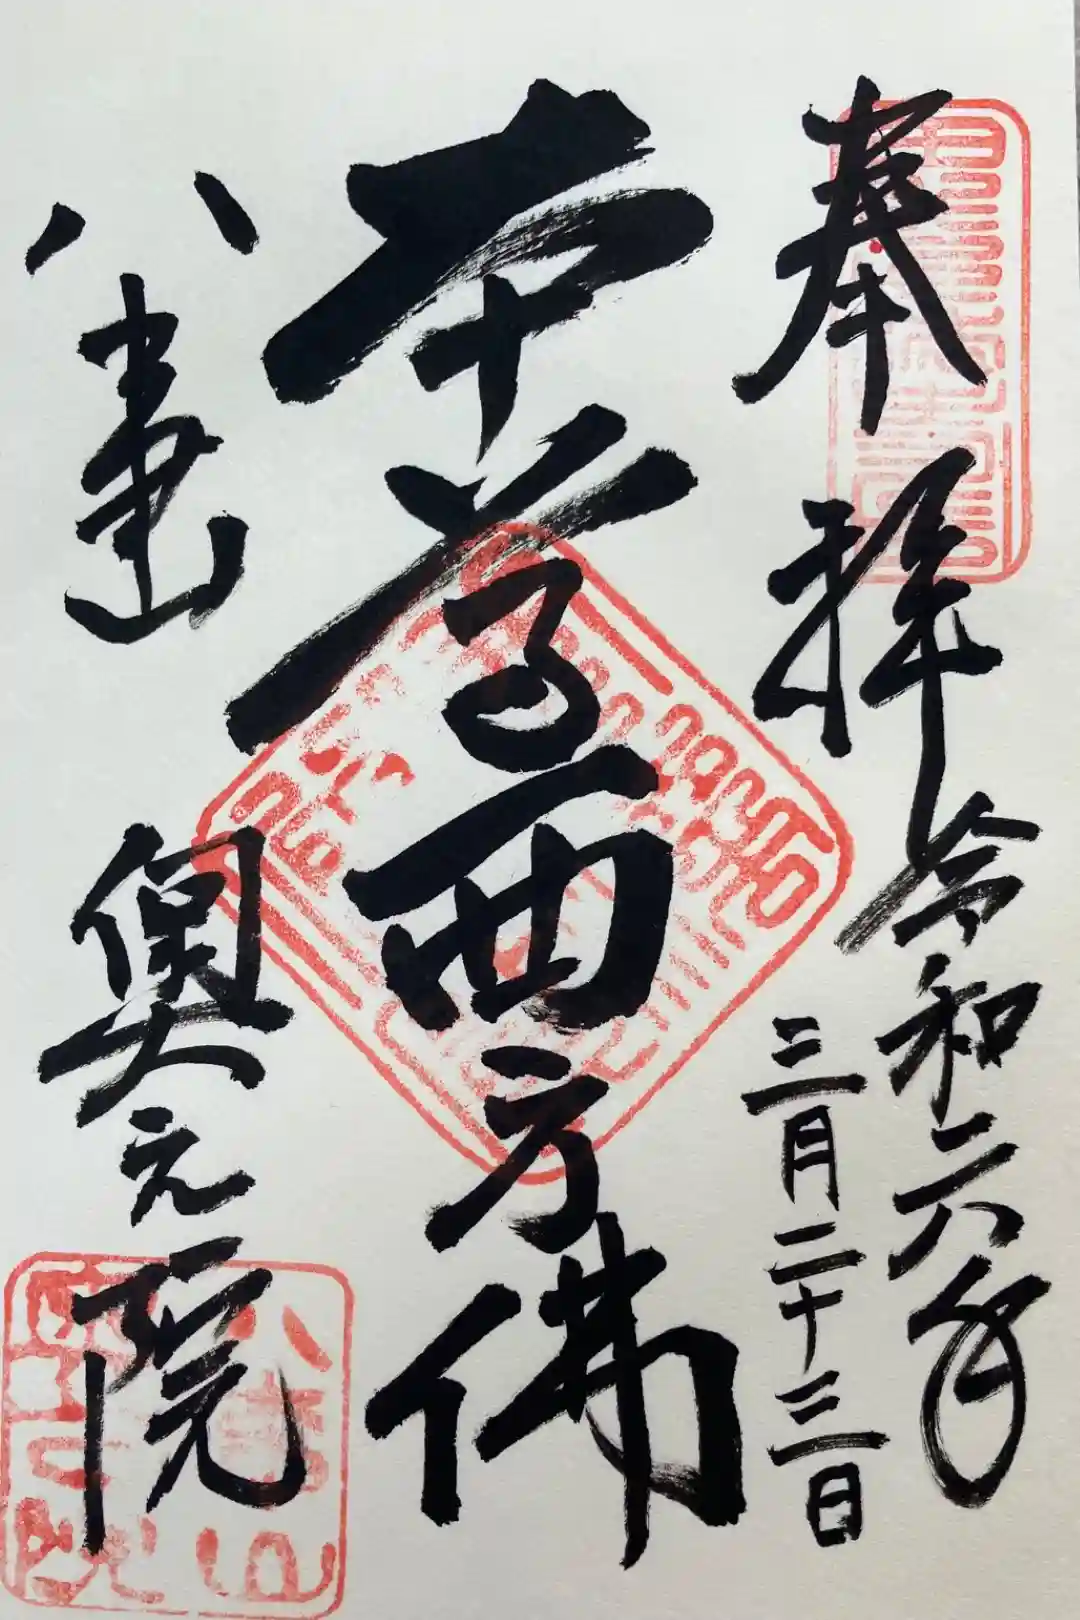 奉拝
令和六年
三月二十三日
本尊西方佛
八事山
奥之院